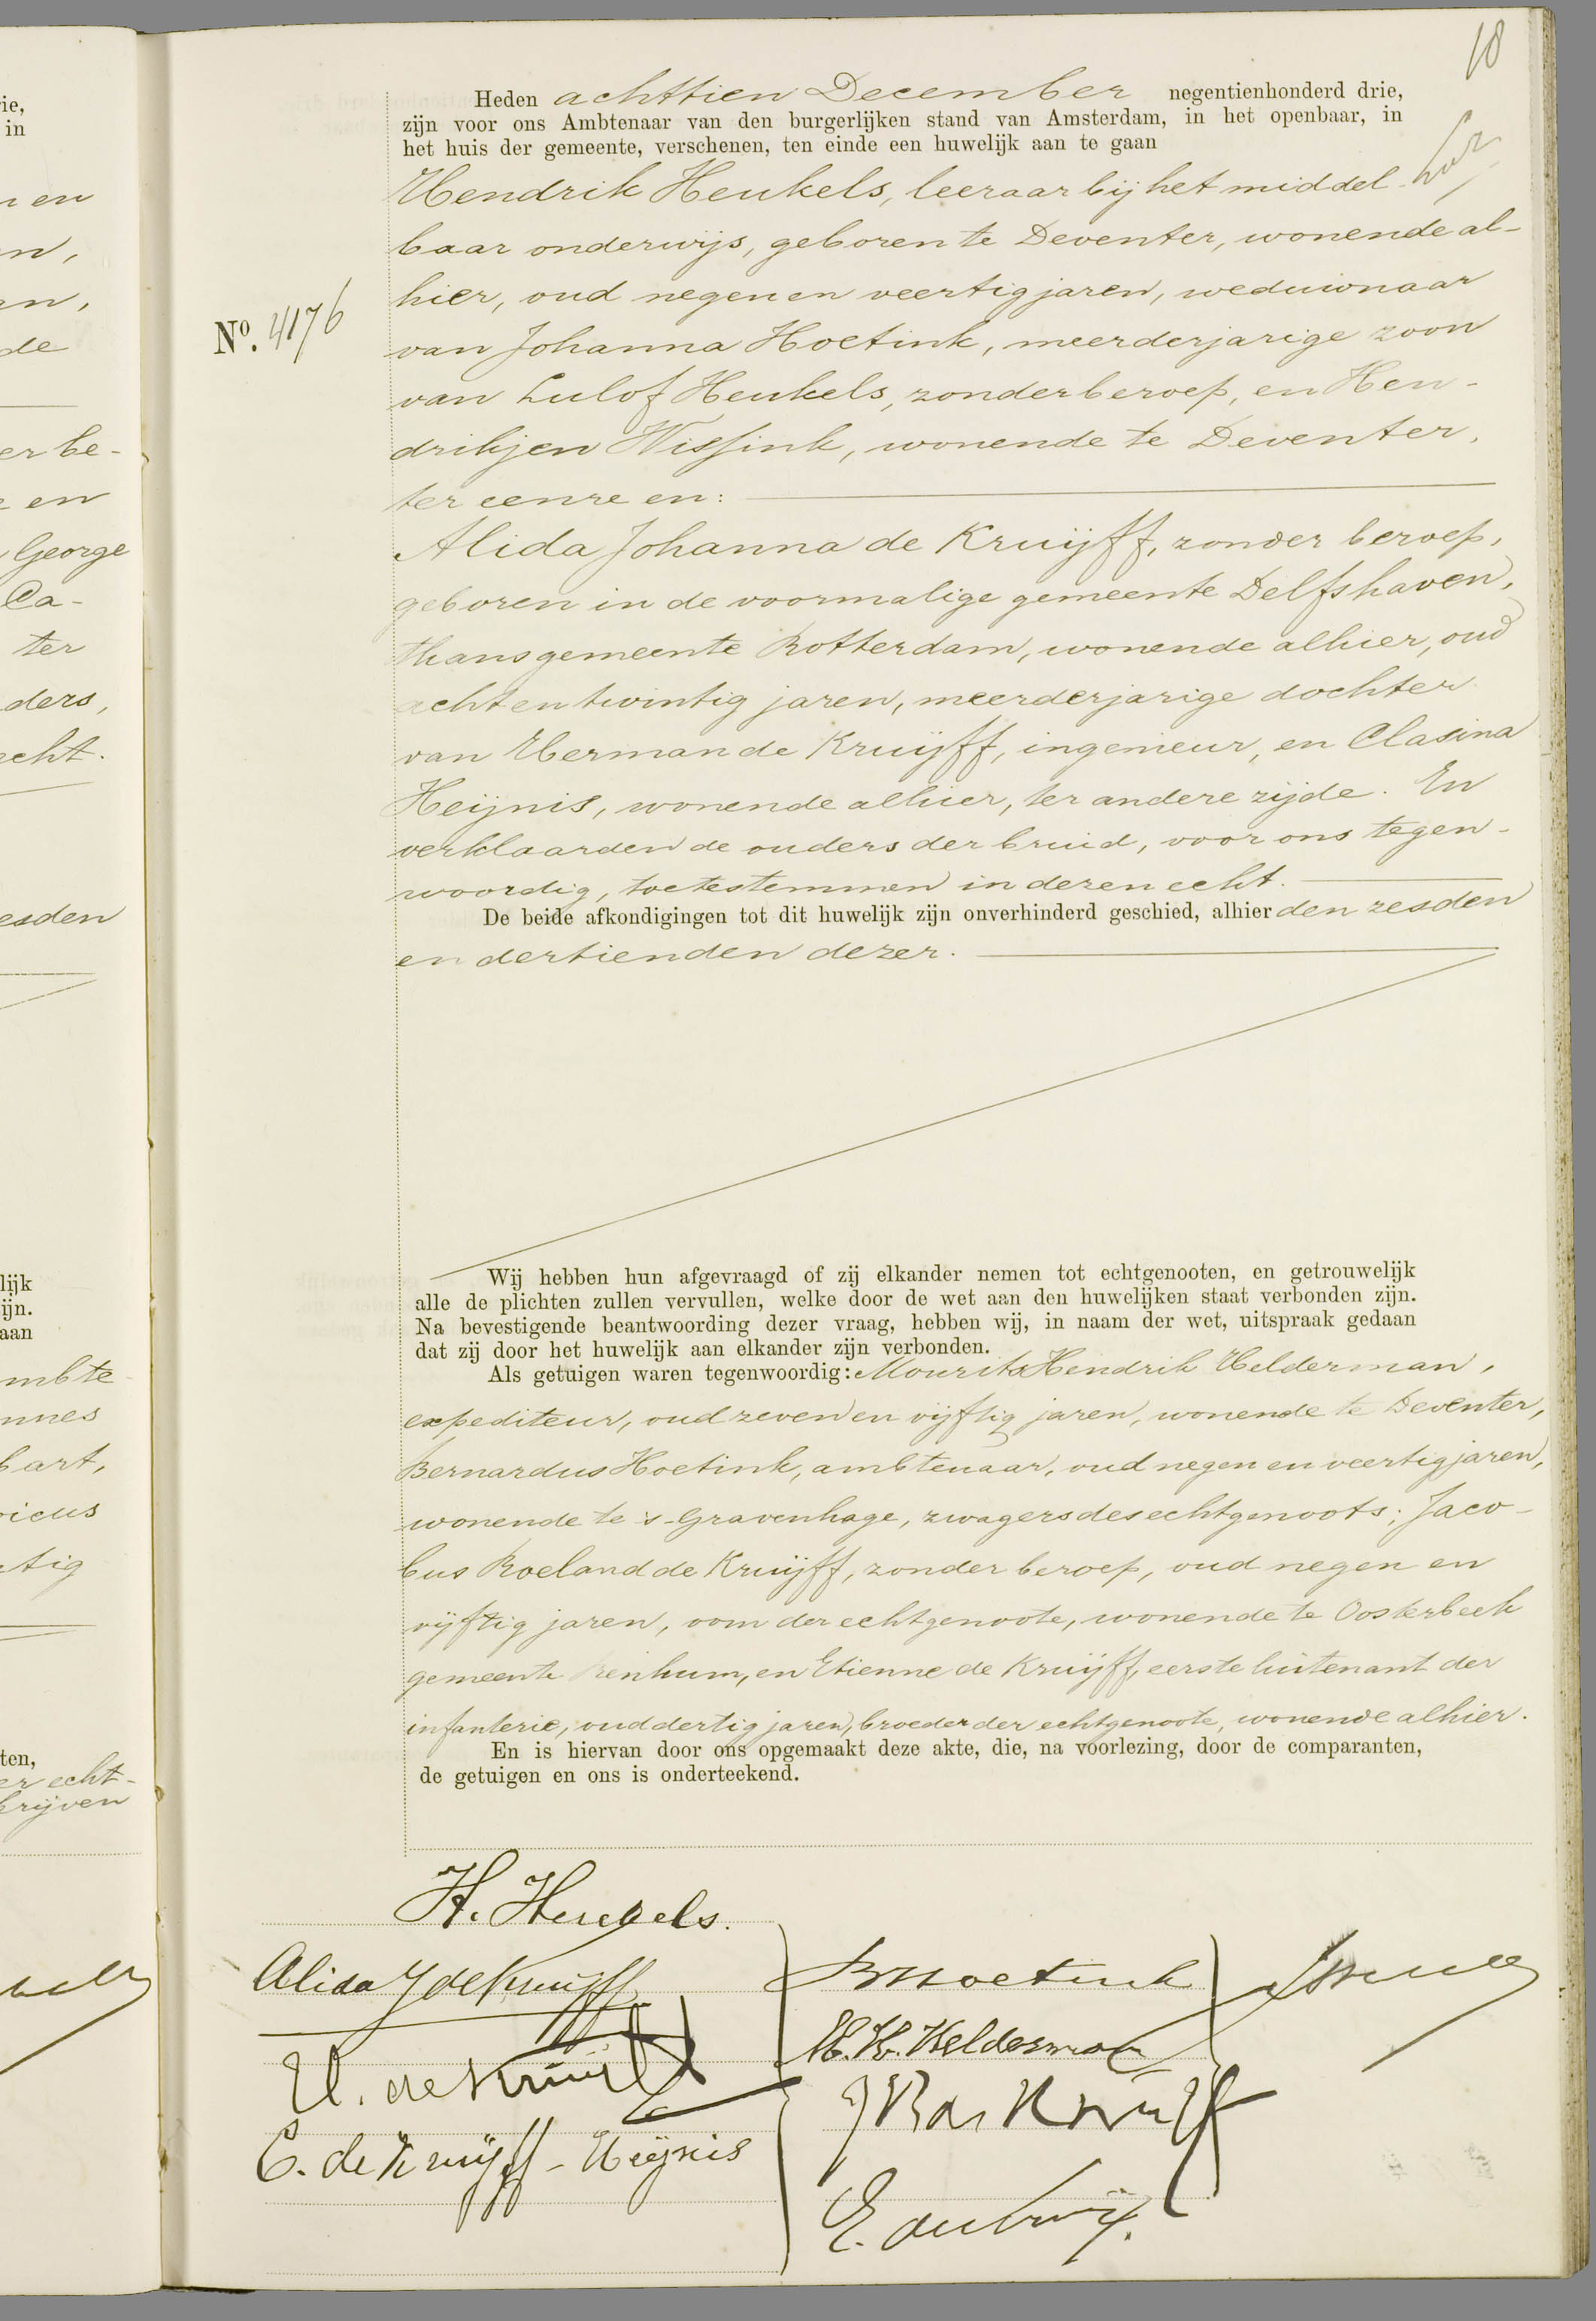 18
Heden achttien December negentienhonderd drie,
zijn voor ons Ambtenaar van den burgerlijken stand van Amsterdam, in het openbaar, in
het huis der gemeente, verschenen, ten einde een huwelijk aan te gaan
Hendrik Heukels, leeraar bij het middel-
baar onderwijs, geboren te Deventer, wonende al-
hier, oud negen en veertig jaren, weduwnaar
No. 4176
van Johanna Hoetink, meerderjarige zoon
van Lulof Heukels, zonder beroep, en Hen-
drikjen Wissink, wonende te Deventer,
ter eenre en:
Alida Johanna de Kruijff, zonder beroep,
geboren in de voormalige gemeente Delfshaven,
thans gemeente Rotterdam, wonende alhier, oud
achtentwintig jaren, meerderjarige dochter
van Herman de Kruijff, ingenieur, en Clasina
Heijnis, wonende alhier, ter andere zijde. En
verklaarden de ouders der bruid, voor ons tegen-
woordig, toetestemmen in dezen echt.
De beide afkondigingen tot dit huwelijk zijn onverhinderd geschied, alhier den zesden
en dertienden dezer.
Wij hebben hun afgevraagd of zij elkander nemen tot echtgenooten, en getrouwelijk
alle de plichten zullen vervullen, welke door de wet aan den huwelijken staat verbonden zijn.
Na bevestigende beantwoording dezer vraag, hebben wij, in naam der wet, uitspraak gedaan
dat zij door het huwelijk aan elkander zijn verbonden.
Als getuigen waren tegenwoordig: Mourits Hendrik Helderman,
expediteur, oud zeven en vijftig jaren, wonende te Deventer,
Bernardus Hoetink, ambtenaar, oud negen en veertig jaren,
wonende te 's-Gravenhage, zwagers des echtgenoots; Jaco-
bus Roeland de Kruijff, zonder beroep, oud negen en
vijftig jaren, oom der echtgenoote, wonende te Oosterbeek
gemeente Renkum, en Etienne de Kruijff, eerste luitenant der
infanterie, oud dertig jaren, broeder der echtgenoote, wonende alhier.
En is hiervan door ons opgemaakt deze akte, die, na voorlezing, door de comparanten,
de getuigen en ons is onderteekend.
H. Heukels.
Alida J de Kruijff
H. de Kruijff
C. de Kruijff - Heijnis
B Hoetink
M. H. Helderman
J R de Kruijff
E. de Kruijff.